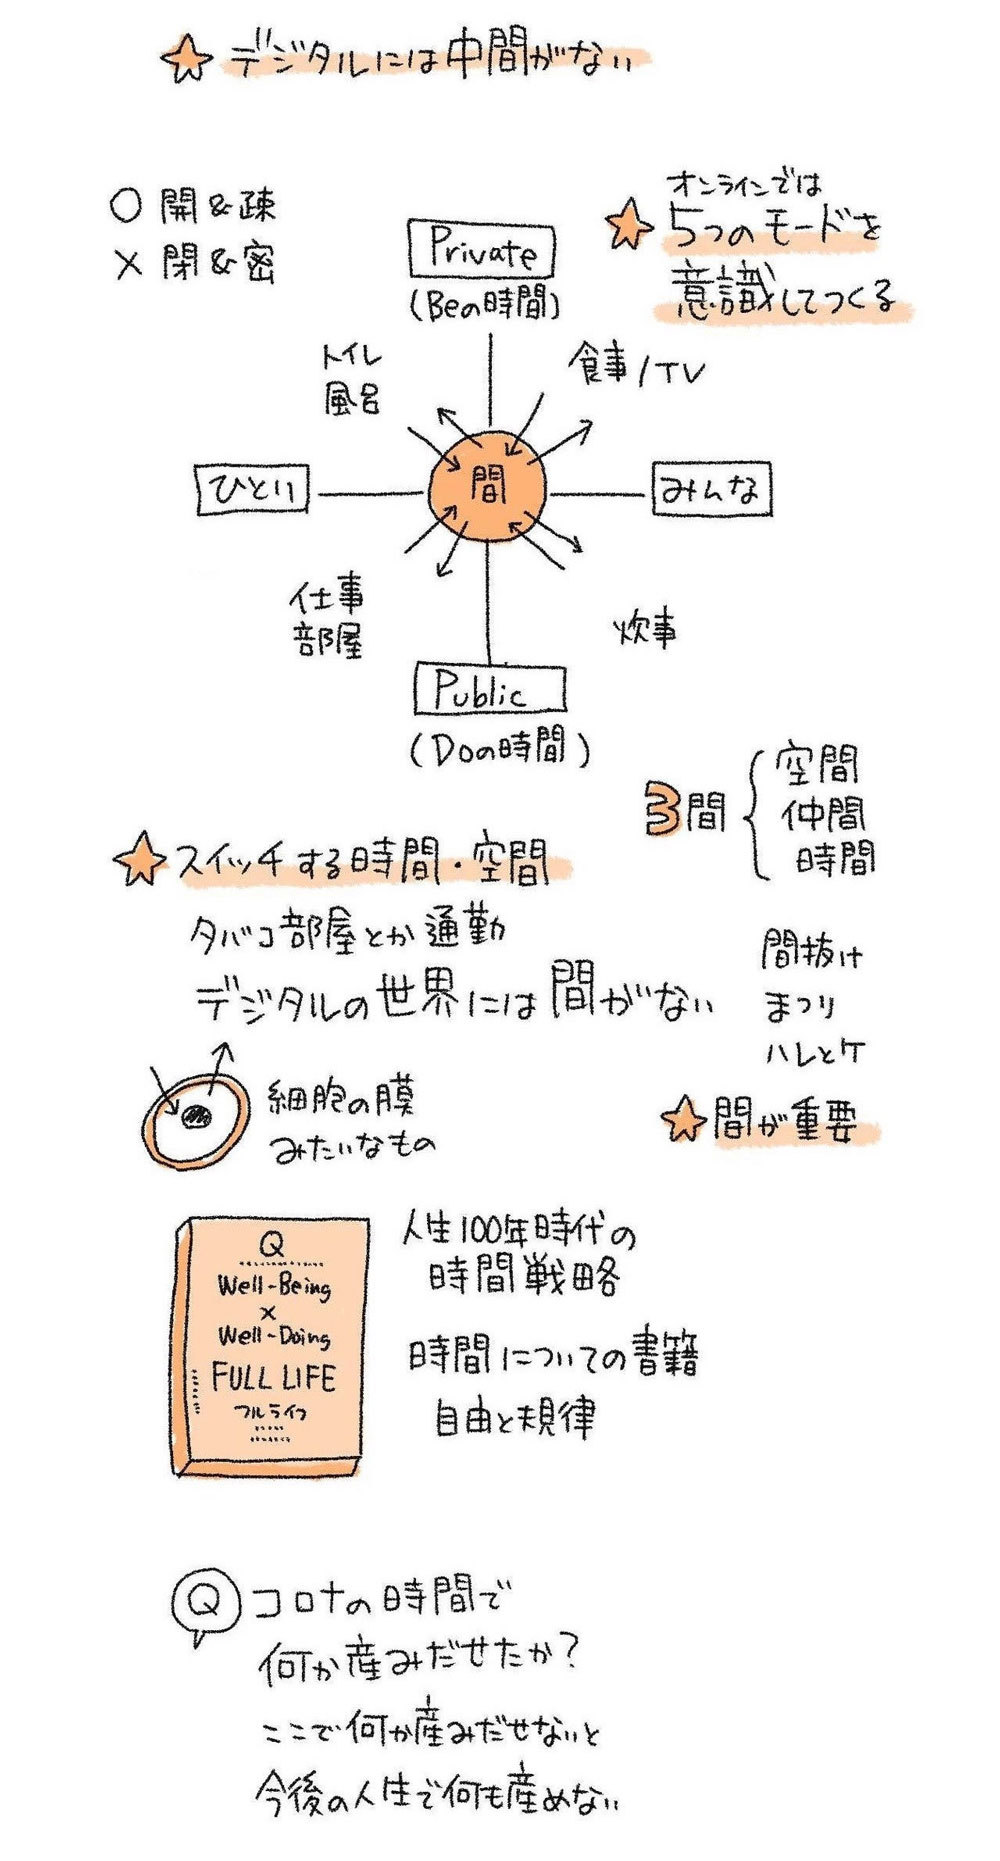 デジタルには中間がない
○ 開&疎
× 閉&密
オンラインでは
5つのモードを
意識してつくる
Private
(Beの時間)
トイレ
風呂
食事/TV
ひとり
間
みんな
仕事
部屋
炊事
Public
(Doの時間)
3間
空間
仲間
時間
スイッチする時間・空間
タバコ部屋とか通勤
デジタルの世界には間がない
間抜け
まつり
ハレとケ
間が重要
細胞の膜
みたいなもの
Q
Well-Being
×
Well-Doing
FULL LIFE
フルライフ
人生100年時代の
時間戦略
時間についての書籍
自由と規律
Q
コロナの時間で
何か産みだせたか?
ここで何か産みだせないと
今後の人生で何も産めない